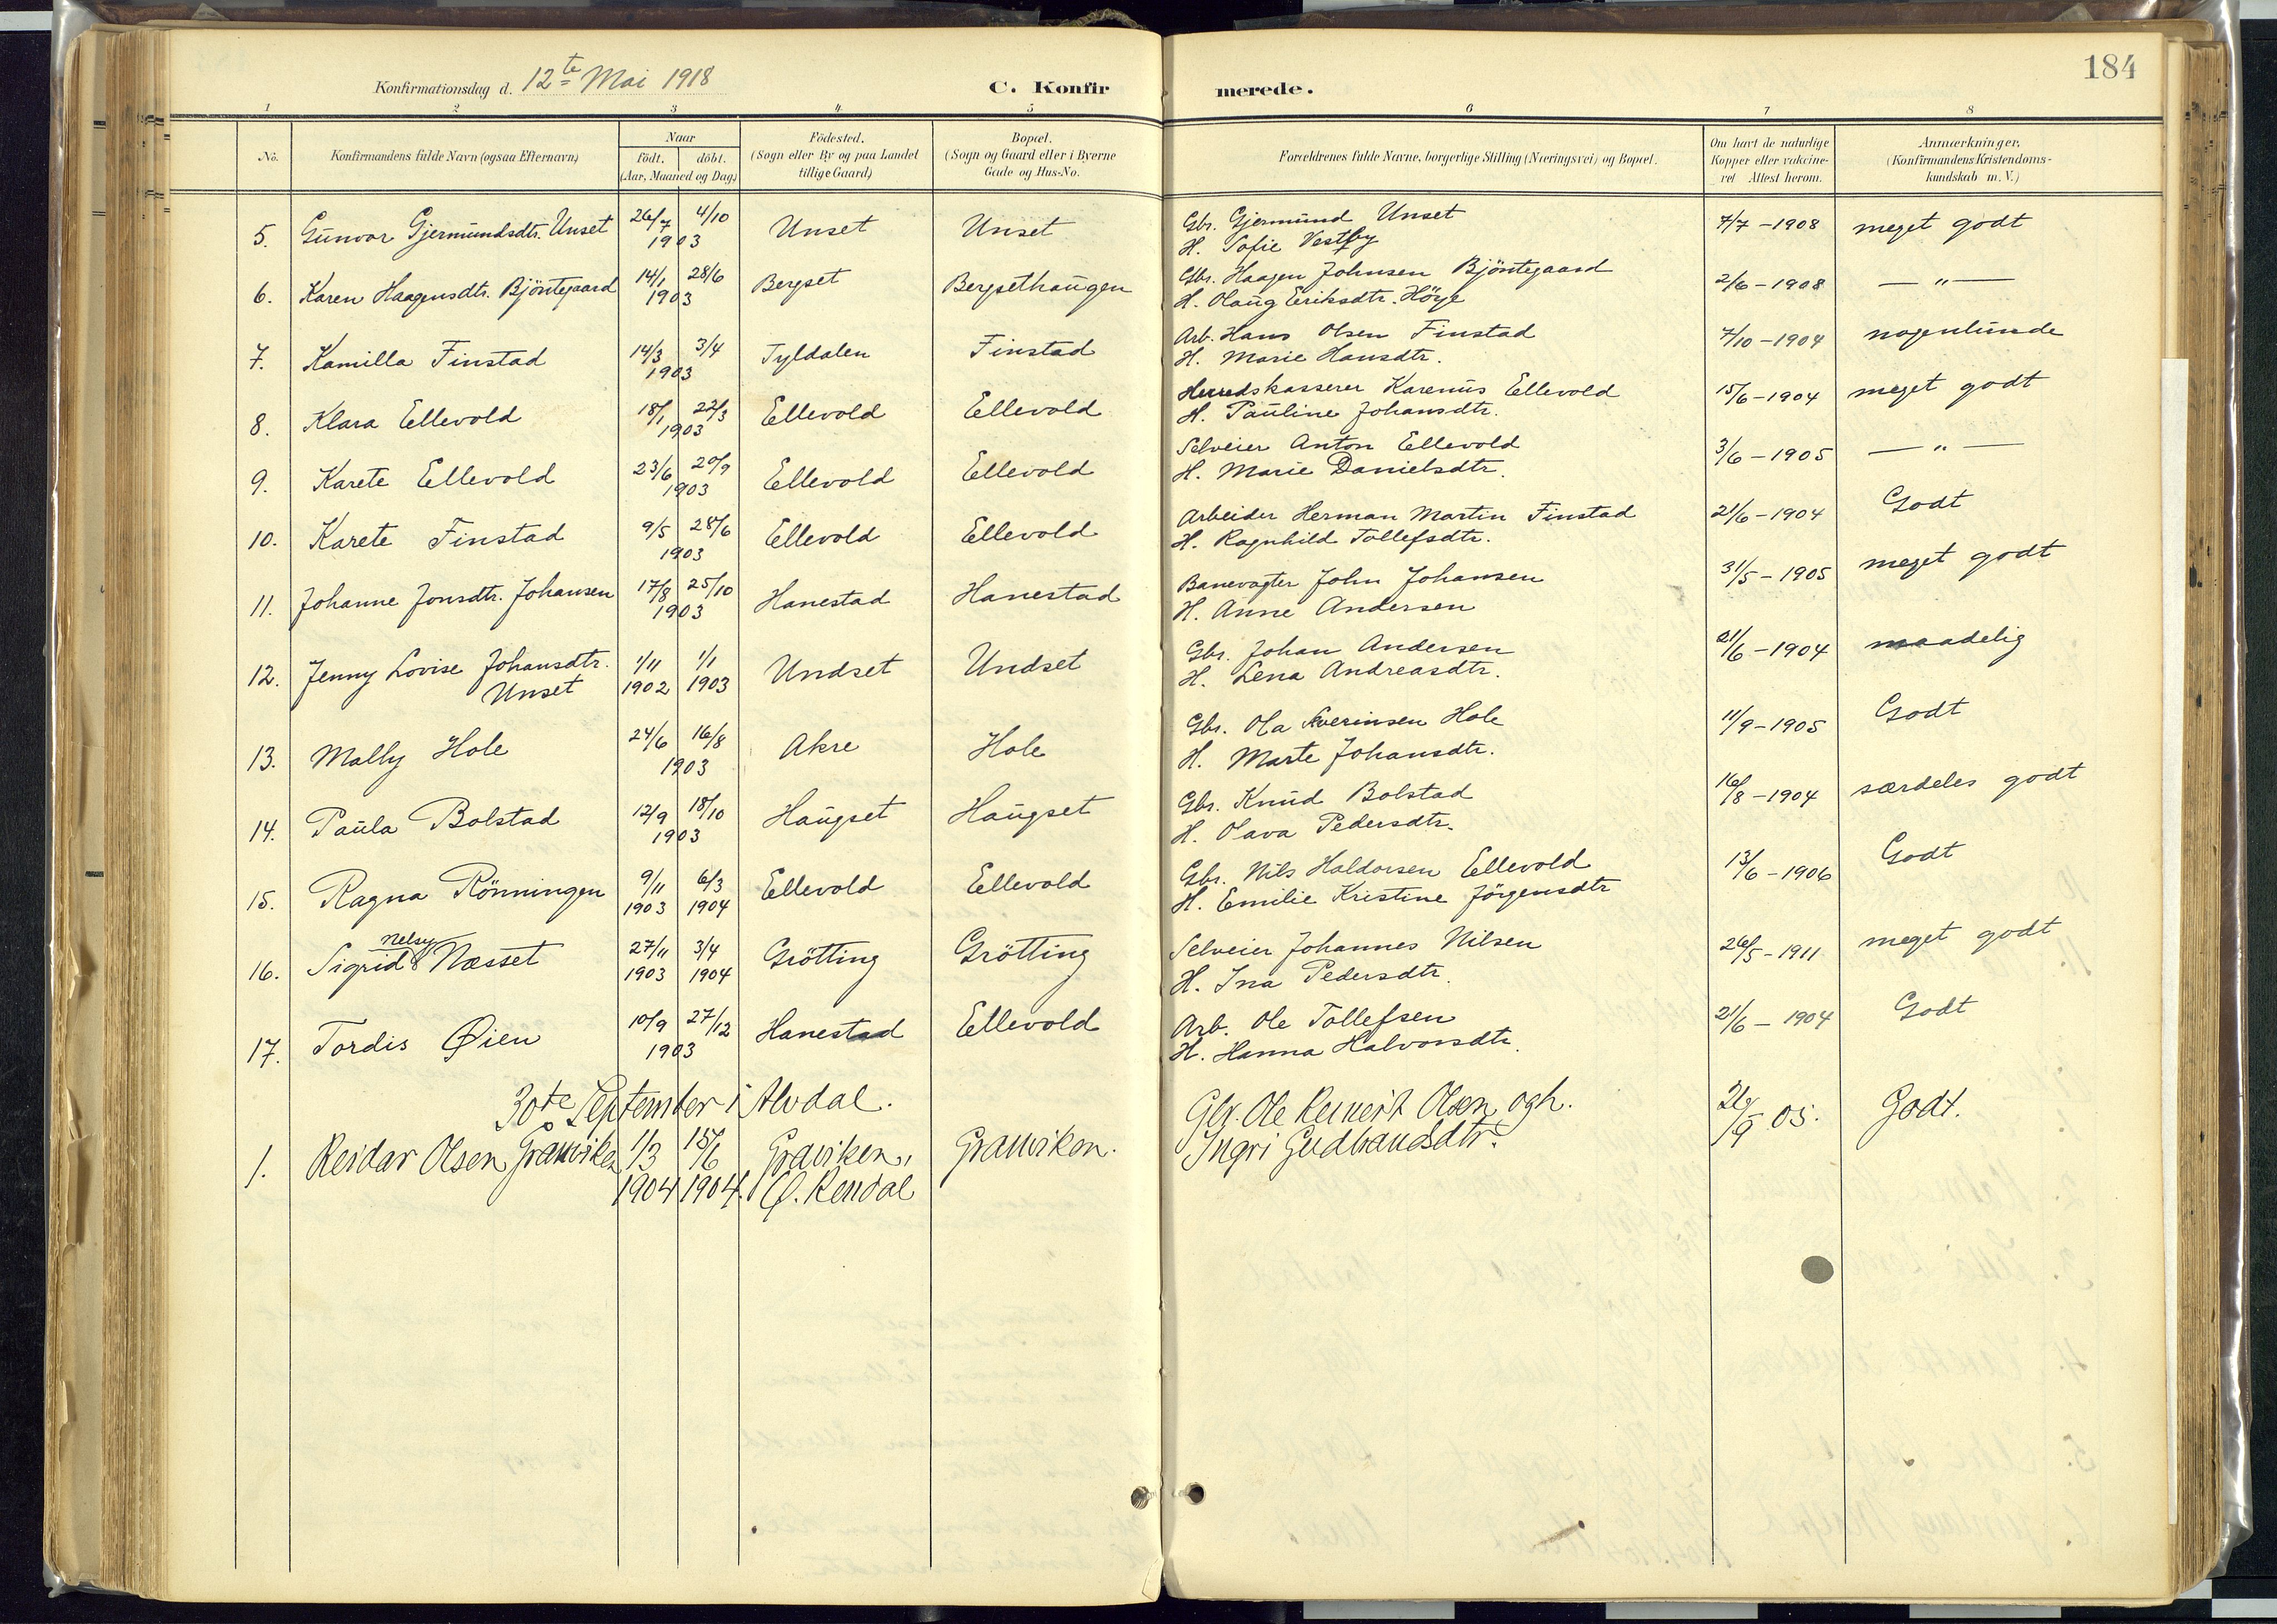 184
Konfirmationsdag d. 12te Mai 1918
C. Konfirmerede.
1 2 3 4 5 6 7 8
No.
Konfirmandens fulde Navn (ogsaa Efternavn)
Naar
födt. döbt.
(Aar, Maaned og Dag)
Födested.
(Sogn eller By og paa Landet
tillige Gaard)
Bopæl.
(Sogn og Gaard eller i Byerne
Gade og Hus-No.
Forældrenes fulde Navne, borgerlige Stilling (Næringsvei) og Bopæl.
Om havt de naturlige
Kopper eller vakcine-
ret Attest herom.
Anmærkninger.
(Konfirmandens Kristendoms-
kundskab m. V.)
5. Gunvor Gjermundsdtr. Unset 26/7 4/10 1903 Unset Unset Gbr. Gjermund Unset 7/7 - 1908 meget godt
H. Sofie Vestby
6. Karen Haagensdtr. Bjöntegaard 14/1 28/6 1903 Bergset Bergsethaugen Gbr. Haagen Johnsen Bjöntegaard 2/6 - 1908 — " —
H. Olaug Eriksdtr. Höye
7. Kamilla Finstad 14/3 3/4 1903 Tyldalen Finstad Arb. Hans Olsen Finstad 7/10 - 1904 nogenlunde
H. Marie Hansdtr.
8. Klara Ellevold 18/1 22/3 1903 Ellevold Ellevold Herredskasserer Karenus Ellevold 15/6 - 1904 meget godt
H. Pauline Johansdtr.
9. Karete Ellevold 23/6 20/9 1903 Ellevold Ellevold Selveier Anton Ellevold 3/6 - 1905 — " —
H. Marie Danielsdtr.
10. Karete Finstad 9/5 28/6 1903 Ellevold Ellevold Arbeider Herman Martin Finstad 21/6 - 1904 Godt
H. Ragnhild Tollefsdtr.
11. Johanne Jonsdtr. Johansen 17/8 25/10 1903 Hanestad Hanestad Banevogter John Johansen 31/5 - 1905 meget godt
H. Anne Andersen
12. Jenny Lovise Johansdtr. 1/11 1/1 Undset Undset Gbr. Johan Andersen 21/6 - 1904 maadelig
Unset 1902 1903 H. Lena Andreasdtr.
13. Mally Hole 24/6 16/8 1903 Akre Hole Gbr. Ola Severinsen Hole 11/9 - 1905 Godt
H. Marte Johansdtr.
14. Paula Bolstad 12/9 18/10 1903 Haugset Haugset Gbr. Knud Bolstad 16/8 - 1904 særdeles godt
H. Olava Pedersdtr.
15. Ragna Rönningen 9/11 6/3 1903 1904 Ellevold Ellevold Gbr. Nils Haldorsen Ellevold 13/6 - 1906 Godt
H. Emilie Kristine Jörgensdtr
16. Sigrid Nelsy Næsset 27/11 3/4 1903 1904 Grötting Grötting Selveier Johannes Nilsen 26/5 - 1911 meget godt
H. Ina Pedersdtr.
17. Tordis Øien 10/9 27/12 1903 Hanestad Ellevold Arb. Ole Tollefsen 21/6 - 1904 Godt
H. Hanna Halvorsdtr.
30te September i Alvdal.
1. Reidar Olsen Graaviken 1/3 15/6 Graviken, Graaviken. Gbr. Ole Reinert Olsen og h. 26/9 05. Godt.
1904 1904. Ø. Rendal Ingri Gudbrandsdtr.